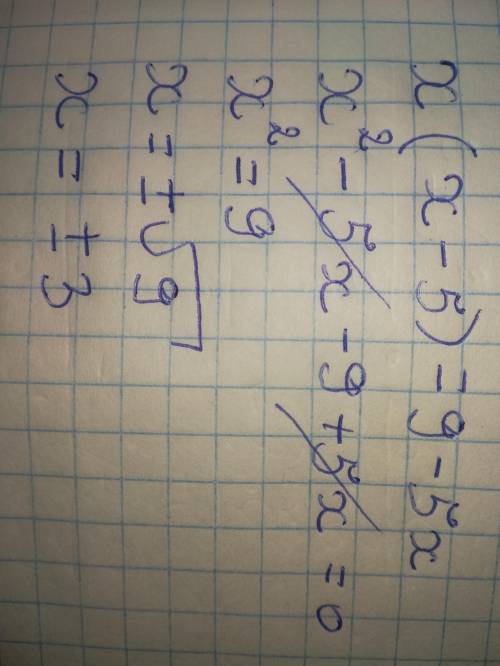 x(x-5)=9-5x
x²-5x-9+5x=0
x²=9
x=±√9
x=±3